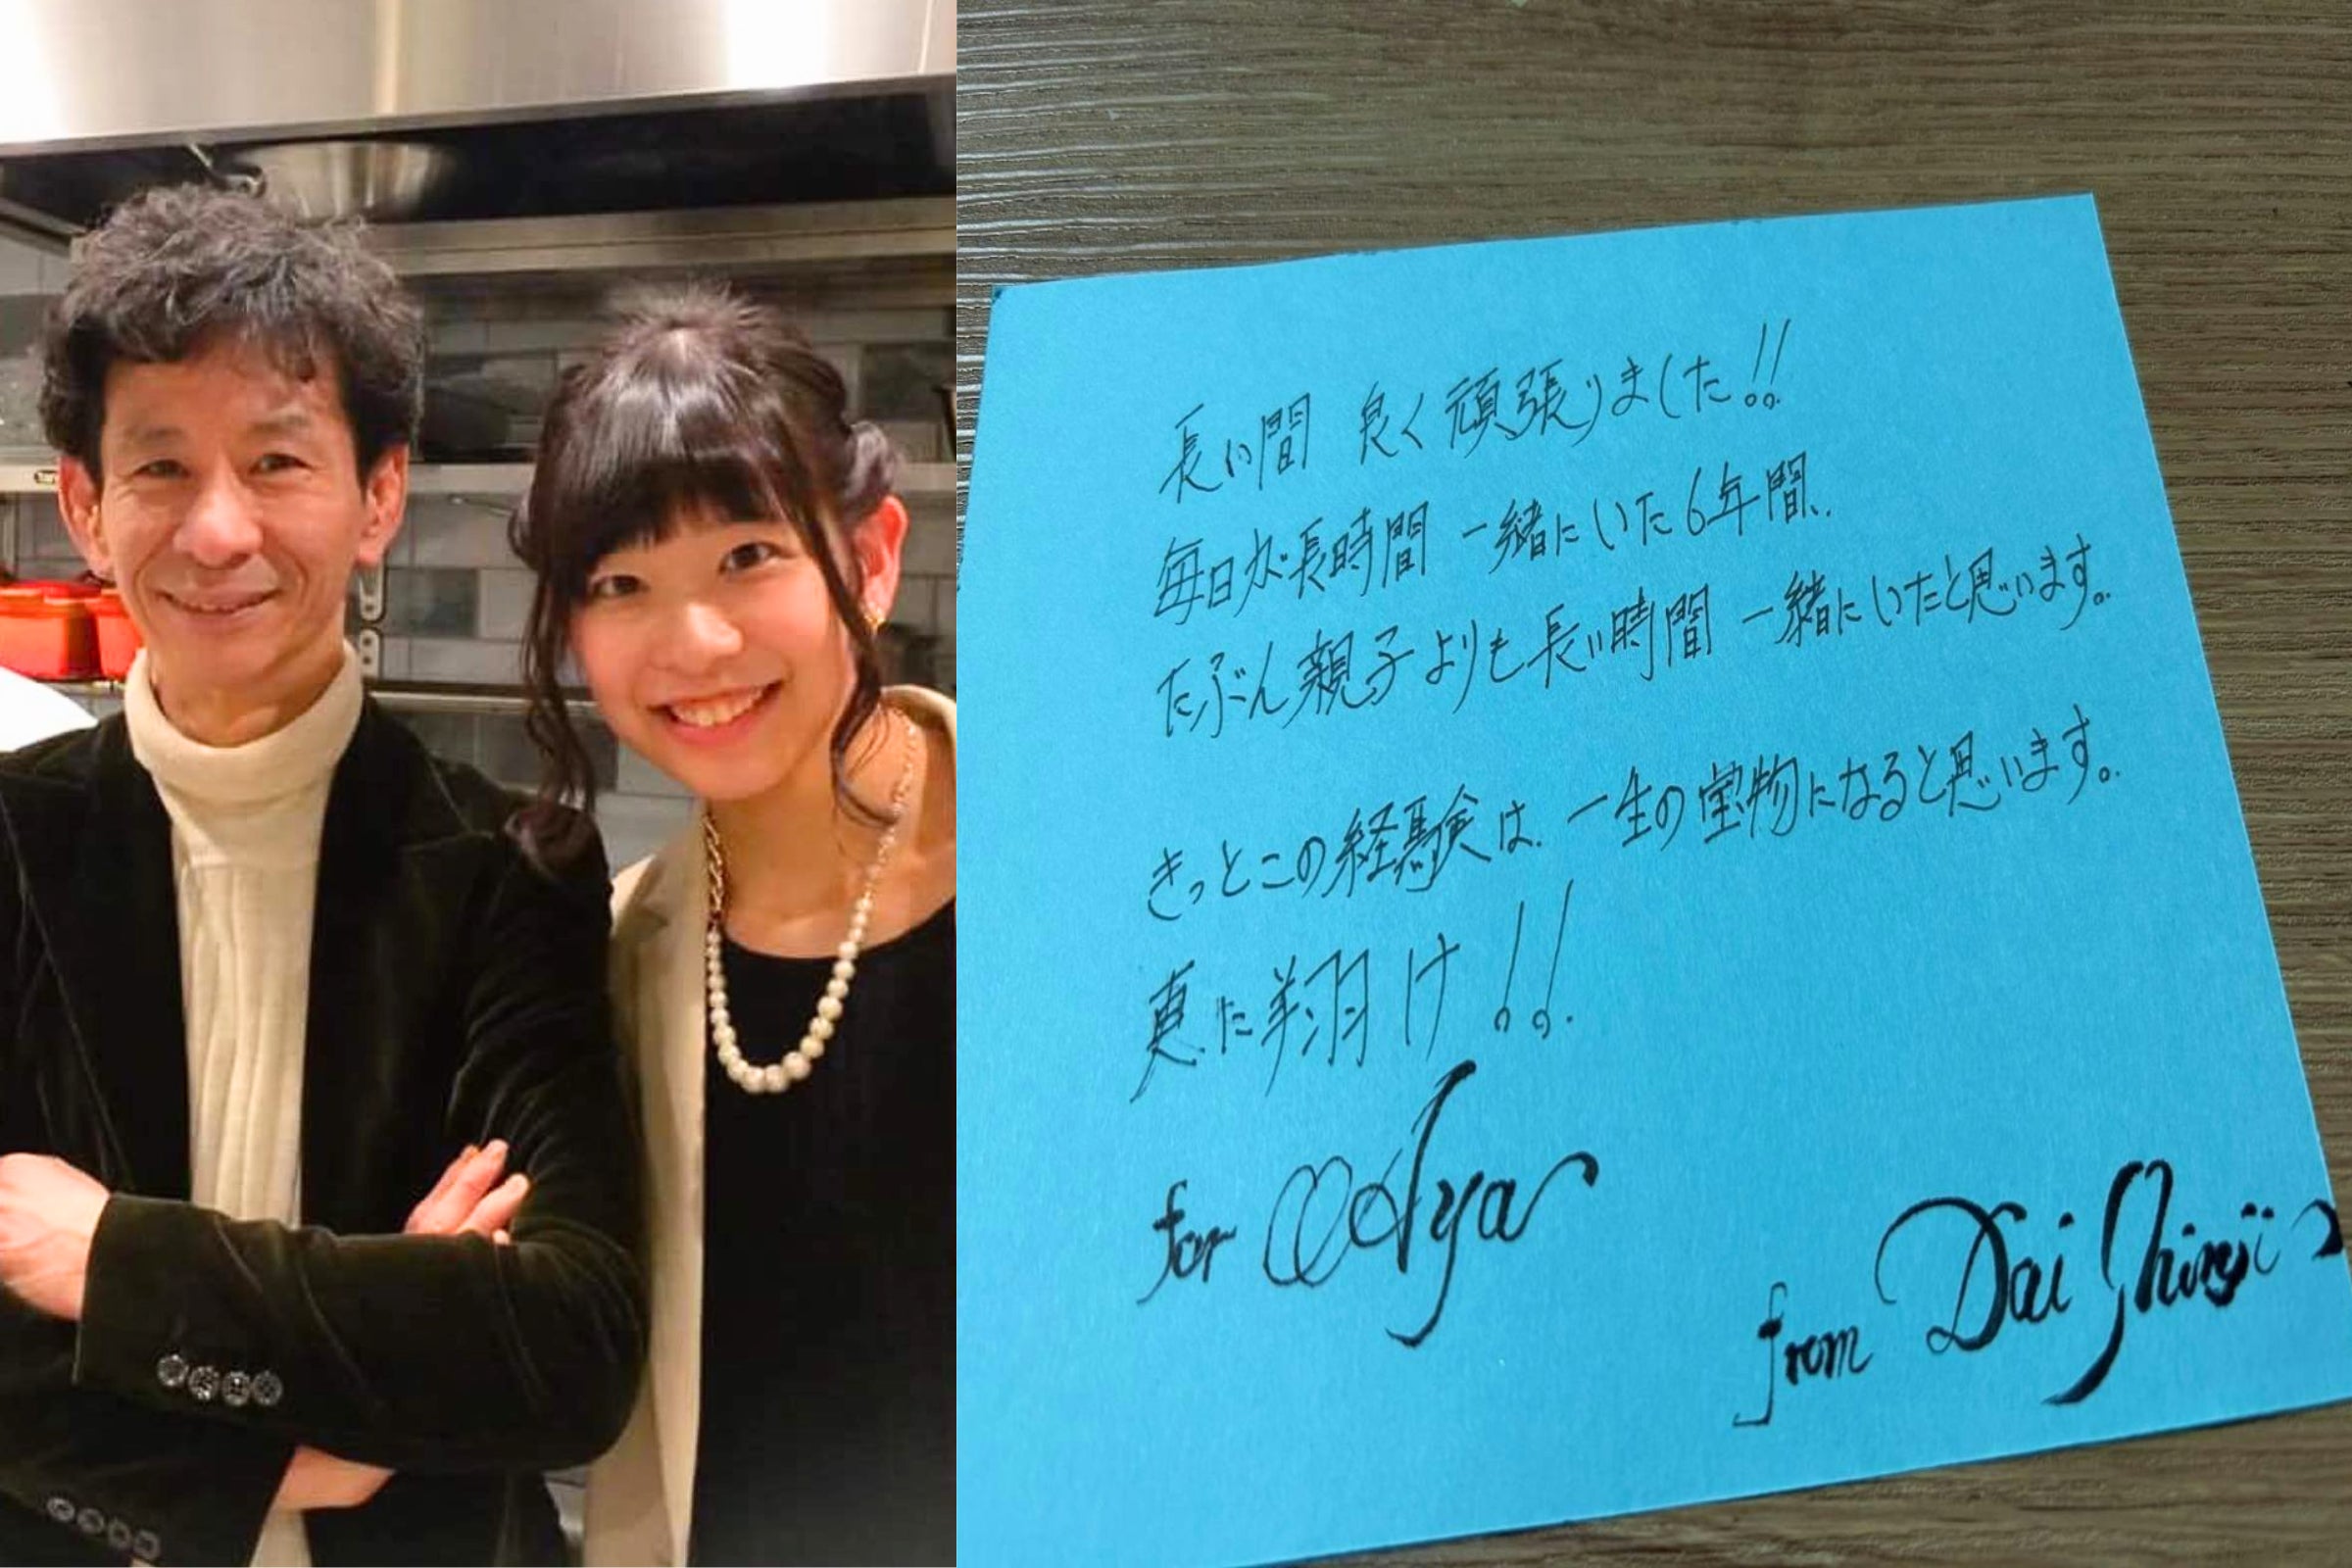 長い間 良く頑張りました!!
毎日が長時間 一緒にいた6年間、
たぶん親子よりも長い時間 一緒にいたと思います。
きっとこの経験は、一生の宝物になると思います。
真に翔け!!
for Aya
from Dai Shinji